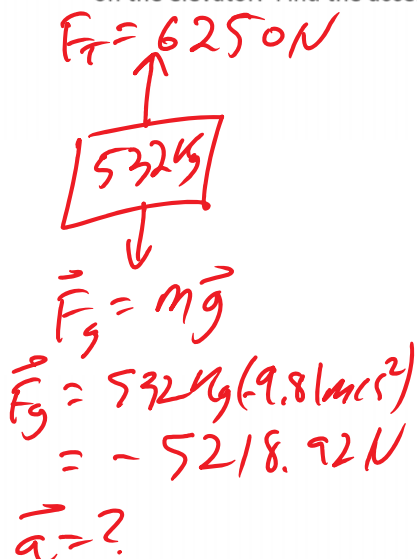 F_T = 6250N
532kg
F⃗_g = mg⃗
F⃗_g = 532kg(-9.81m/s²)
= - 5218.92N
a⃗ = ?